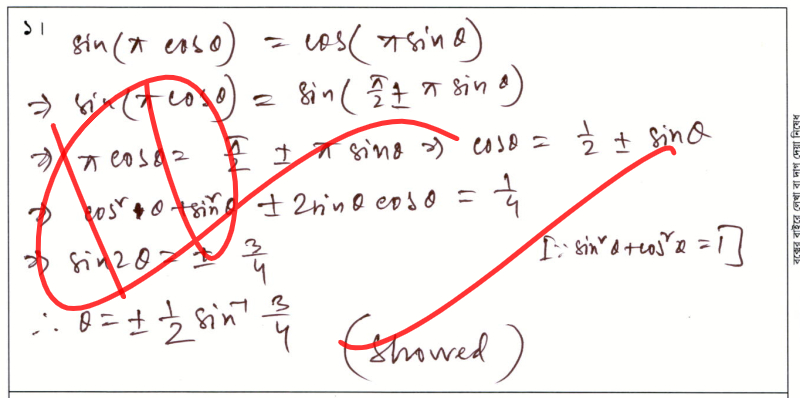 ১।
sin(π cosθ) = cos(πsinθ)
⇒ sin(πcosθ) = sin(π/2 ± π sinθ)
⇒ π cosθ = π/2 ± π sinθ ⇒ cosθ = 1/2 ± sinθ
⇒ cos²θ + sin²θ ± 2sinθ cosθ = 1/4
⇒ sin2θ = ± 3/4 [∵ sin²θ + cos²θ = 1]
∴ θ = ± 1/2 sin⁻¹ 3/4
(Showed)
বক্সের বাইরে লেখা বা দাগ দেয়া নিষেধ